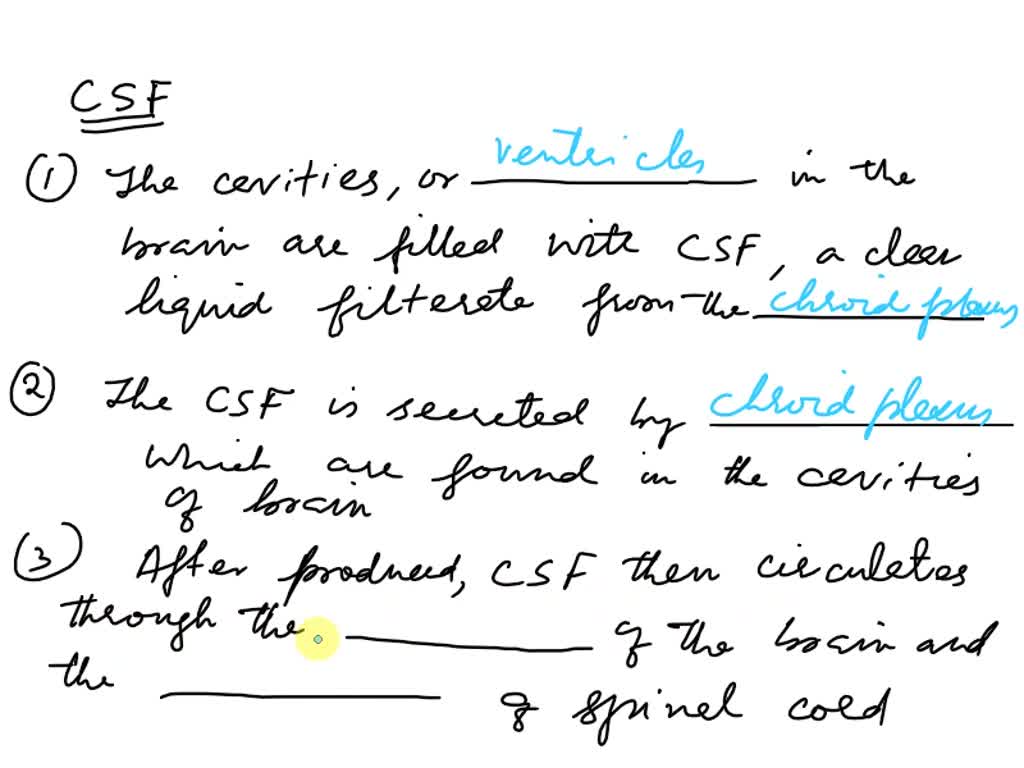 CSF
① The cavities, or ventricles in the
brain are filled with CSF, a clear
liquid filterate from the chroid plexus
② The CSF is secreted by chroid plexus
which are found in the cavities
of brain
③ After produced, CSF then circulates
through the __________ of the brain and
the __________ of spinel cord